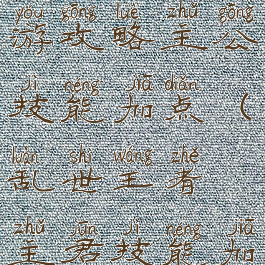 yóu gōng luè zhǔ gōng
游攻略主公
jì néng jiā diǎn
技能加点（
luàn shì wáng zhě
乱世王者
zhǔ jūn jì néng jiā
主君技能加